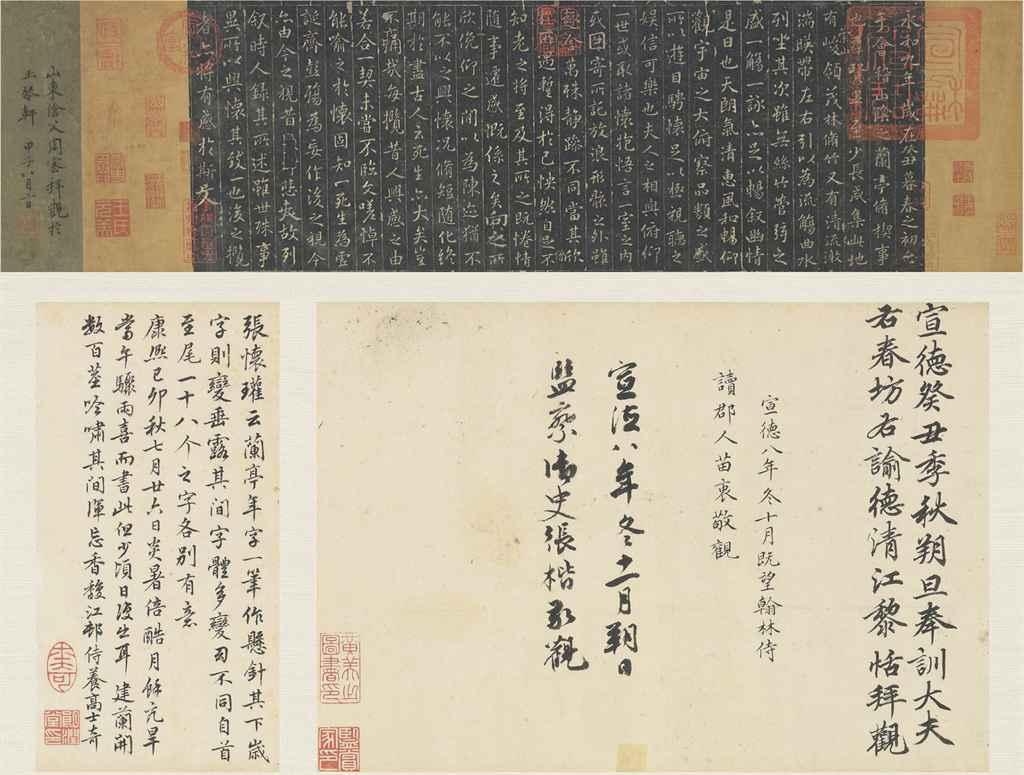 永和九年歲在癸丑暮春之初會
于會稽山陰之蘭亭脩禊事
也羣賢畢至少長咸集此地
有峻領茂林脩竹又有清流激
湍暎帶左右引以為流觴曲水
列坐其次雖無絲竹管弦之
盛一觴一詠亦足以暢敘幽情
是日也天朗氣清惠風和暢仰
觀宇宙之大俯察品類之盛
所以遊目騁懷足以極視聽之
娛信可樂也夫人之相與俯仰
一世或取諸懷抱悟言一室之內
或因寄所託放浪形骸之外雖
趣舍萬殊靜躁不同當其欣
於所遇蹔得於己怏然自足不
知老之將至及其所之既惓情
隨事遷感慨係之矣向之所
欣俛仰之間以為陳迹猶不
能不以之興懷況脩短隨化終
期於盡古人云死生亦大矣豈
不痛哉每攬昔人興感之由
若合一契未嘗不臨文嗟悼不
能喻之於懷固知一死生為虛
誕齊彭殤為妄作後之視今
亦由今之視昔悲夫故列
敘時人錄其所述雖世殊事
異所以興懷其致一也後之攬
者亦將有感於斯文
山東傖父周密拜觀於
玉磬軒 甲子八月二日
宣德癸丑季秋朔旦奉訓大夫
右春坊右諭德清江黎恬拜觀
宣德八年冬十月既望翰林侍
讀郡人苗衷敬觀
宣德八年冬十一月朔日
監察御史張楷敬觀
張懷瓘云蘭亭年字一筆作懸針其下歲
字則變垂露其間字體多變勾不同自首
至尾一十八个之字各別有意
康熙己卯秋七月廿六日炎暑倍酷月餘亢旱
當午驟雨喜而書此但少頃日復出耳 建蘭開
數百莖吟嘯其間渾忘香馥江邨侍養高士奇